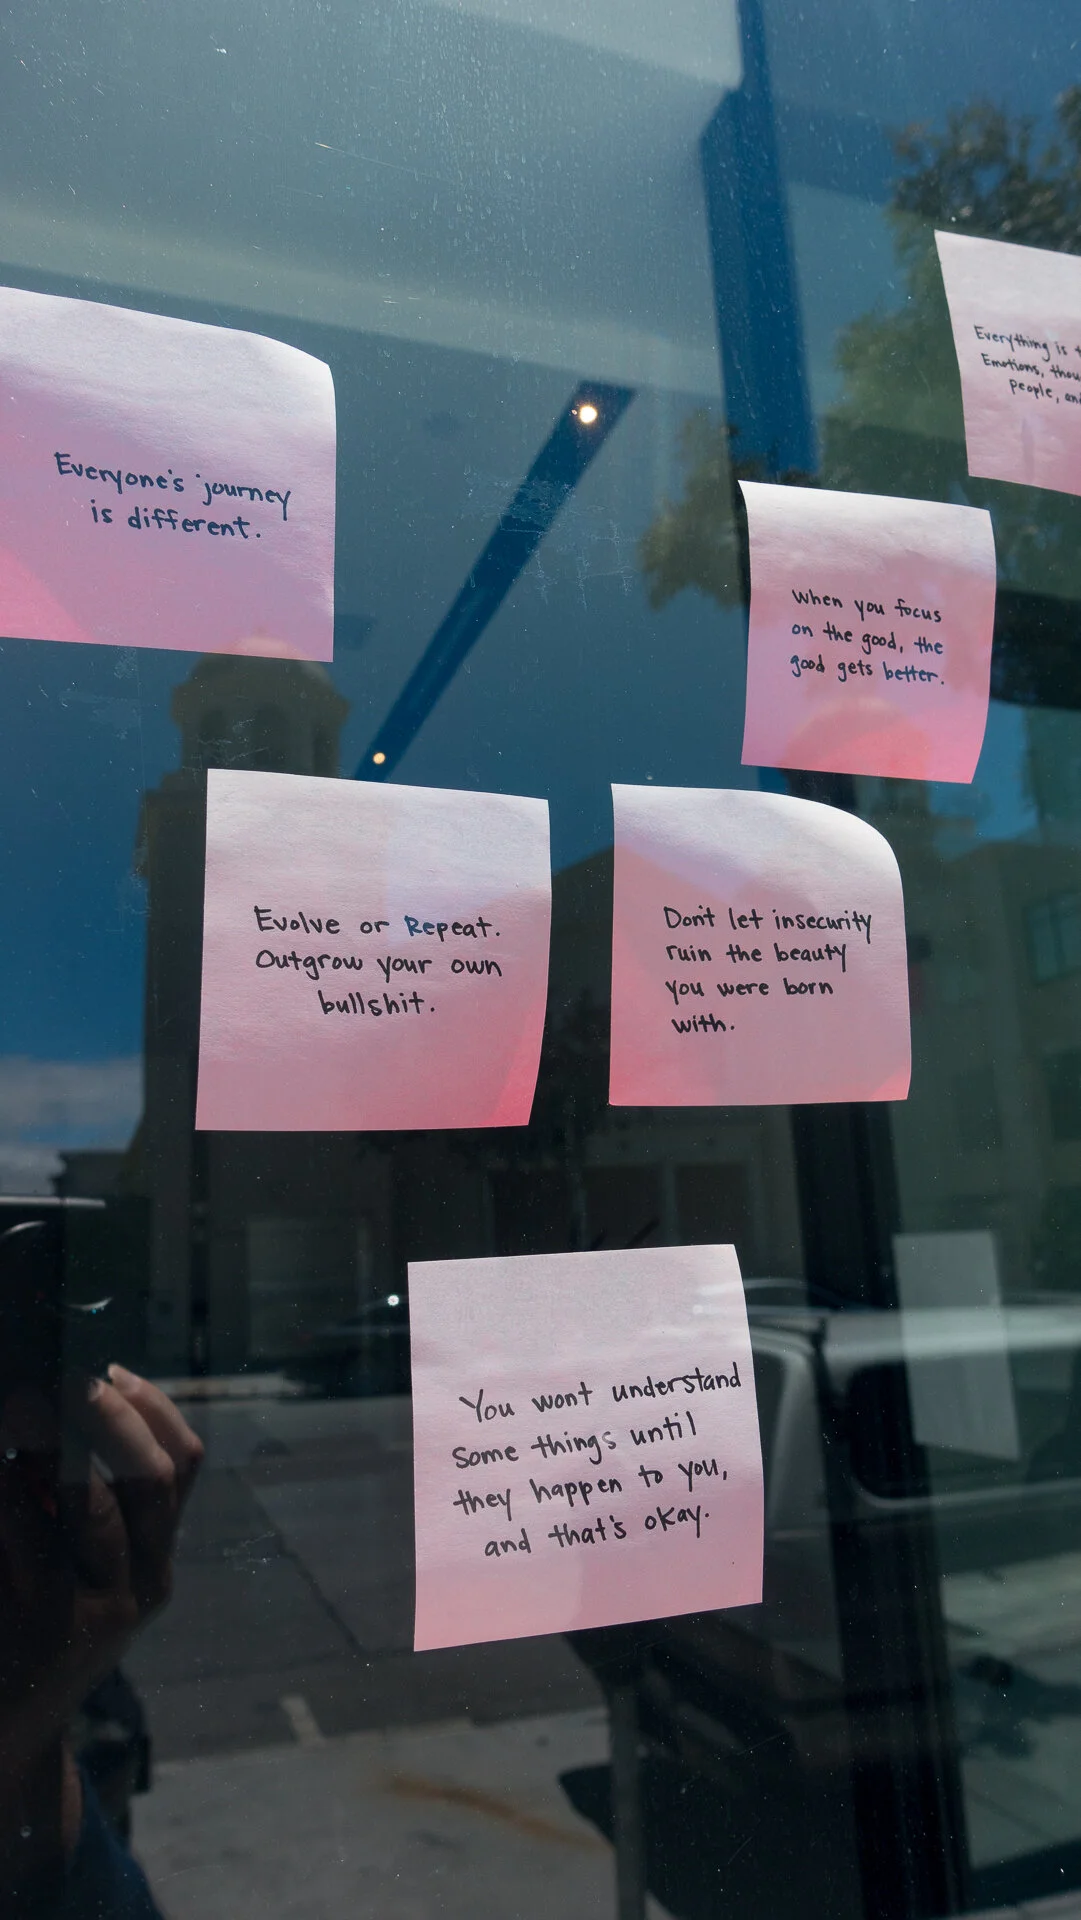 Everyone's journey
is different.
Everything is
Emotions,
people,
When you focus
on the good, the
good gets better.
Evolve or Repeat.
Outgrow your own
bullshit.
Don't let insecurity
ruin the beauty
you were born
with.
You wont understand
some things until
they happen to you,
and that's okay.